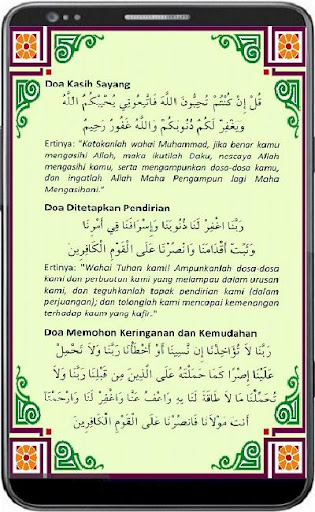 Doa Kasih Sayang
قُلْ إِنْ كُنْتُمْ تُحِبُّونَ اللَّهَ فَاتَّبِعُونِي يُحْبِبْكُمُ اللَّهُ
وَيَغْفِرْ لَكُمْ ذُنُوبَكُمْ وَاللَّهُ غَفُورٌ رَحِيمٌ
Ertinya: "Katakanlah wahai Muhammad, jika benar kamu
mengasihi Allah, maka ikutilah Daku, nescaya Allah
mengasihi kamu, serta mengampunkan dosa-dosa kamu,
dan ingatlah Allah Maha Pengampun lagi Maha
Mengasihani."
Doa Ditetapkan Pendirian
رَبَّنَا اغْفِرْ لَنَا ذُنُوبَنَا وَإِسْرَافَنَا فِي أَمْرِنَا
وَثَبِّتْ أَقْدَامَنَا وَانْصُرْنَا عَلَى الْقَوْمِ الْكَافِرِينَ
Ertinya: "Wahai Tuhan kami! Ampunkanlah dosa-dosa
kami dan perbuatan kami yang melampau dalam urusan
kami, dan teguhkanlah tapak pendirian kami (dalam
perjuangan); dan tolonglah kami mencapai kemenangan
terhadap kaum yang kafir."
Doa Memohon Keringanan dan Kemudahan
رَبَّنَا لاَ تُؤَاخِذْنَا إِن نَّسِينَا أَوْ أَخْطَأْنَا رَبَّنَا وَلاَ تَحْمِلْ
عَلَيْنَا إِصْرًا كَمَا حَمَلْتَهُ عَلَى الَّذِينَ مِن قَبْلِنَا رَبَّنَا وَلاَ
تُحَمِّلْنَا مَا لاَ طَاقَةَ لَنَا بِهِ وَاعْفُ عَنَّا وَاغْفِرْ لَنَا وَارْحَمْنَا
أَنتَ مَوْلاَنَا فَانصُرْنَا عَلَى الْقَوْمِ الْكَافِرِينَ